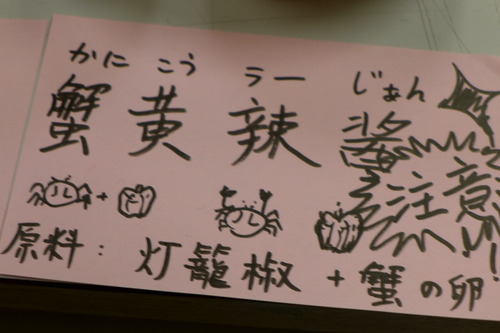 かに こう ラー じぁん
蟹黄辣醤
注意
+
原料：灯籠椒+蟹の卵